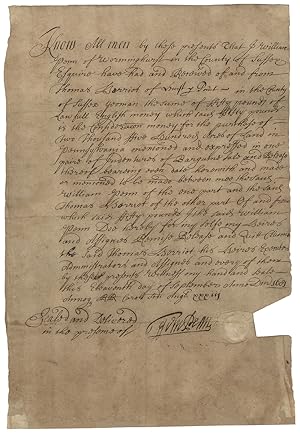 Know All men by these presents That I William
Penn of Worminghurst in the County of Sussex
Esquire have Had and Received of and from
Thomas Herriot of Hurst in the County
of Sussex Yeoman the sume of fifty pounds of
Lawfull English money which said fifty pounds
is the Consideration money for the purchase of
Two Thousand five Hundred Acres of Land in
Pennsylvania mentioned and expressed in one
paire of Indentures of Bargaine Sale and Release
thereof bearing even date herewith and made
or mentioned to be made between mee the said
William Penn of the one part and the said
Thomas Herriot of the other part Of and from
which said fifty pounds I the said William
Penn Doe hereby for my selfe my Heires
and Assignes Remise Release and Quit Claime
the said Thomas Herriot his Heires Executors
Administrators and Assignes and every of them
by these presents Witnesse my hand and Seale
this Eleventh day of September Anno Dom 1681
Sealed and Delivered
in the presence of
Wm Penn